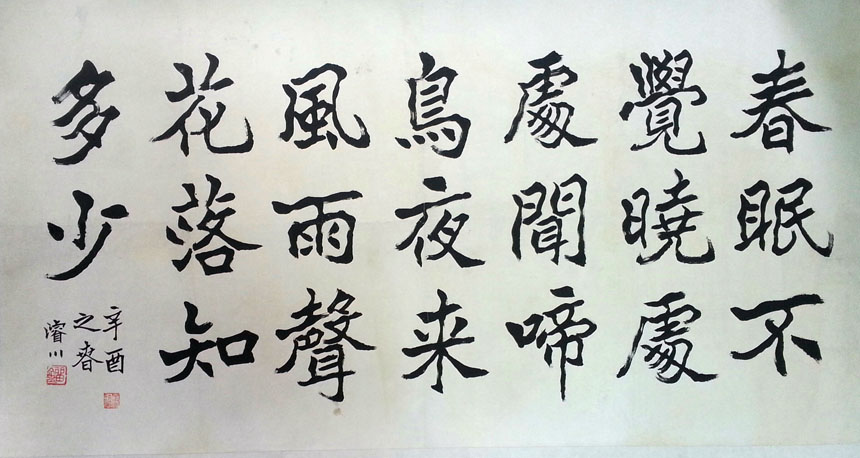 春眠不
覺曉處
處聞啼
鳥夜来
風雨聲
花落知
多少
辛酉
之春
濬川